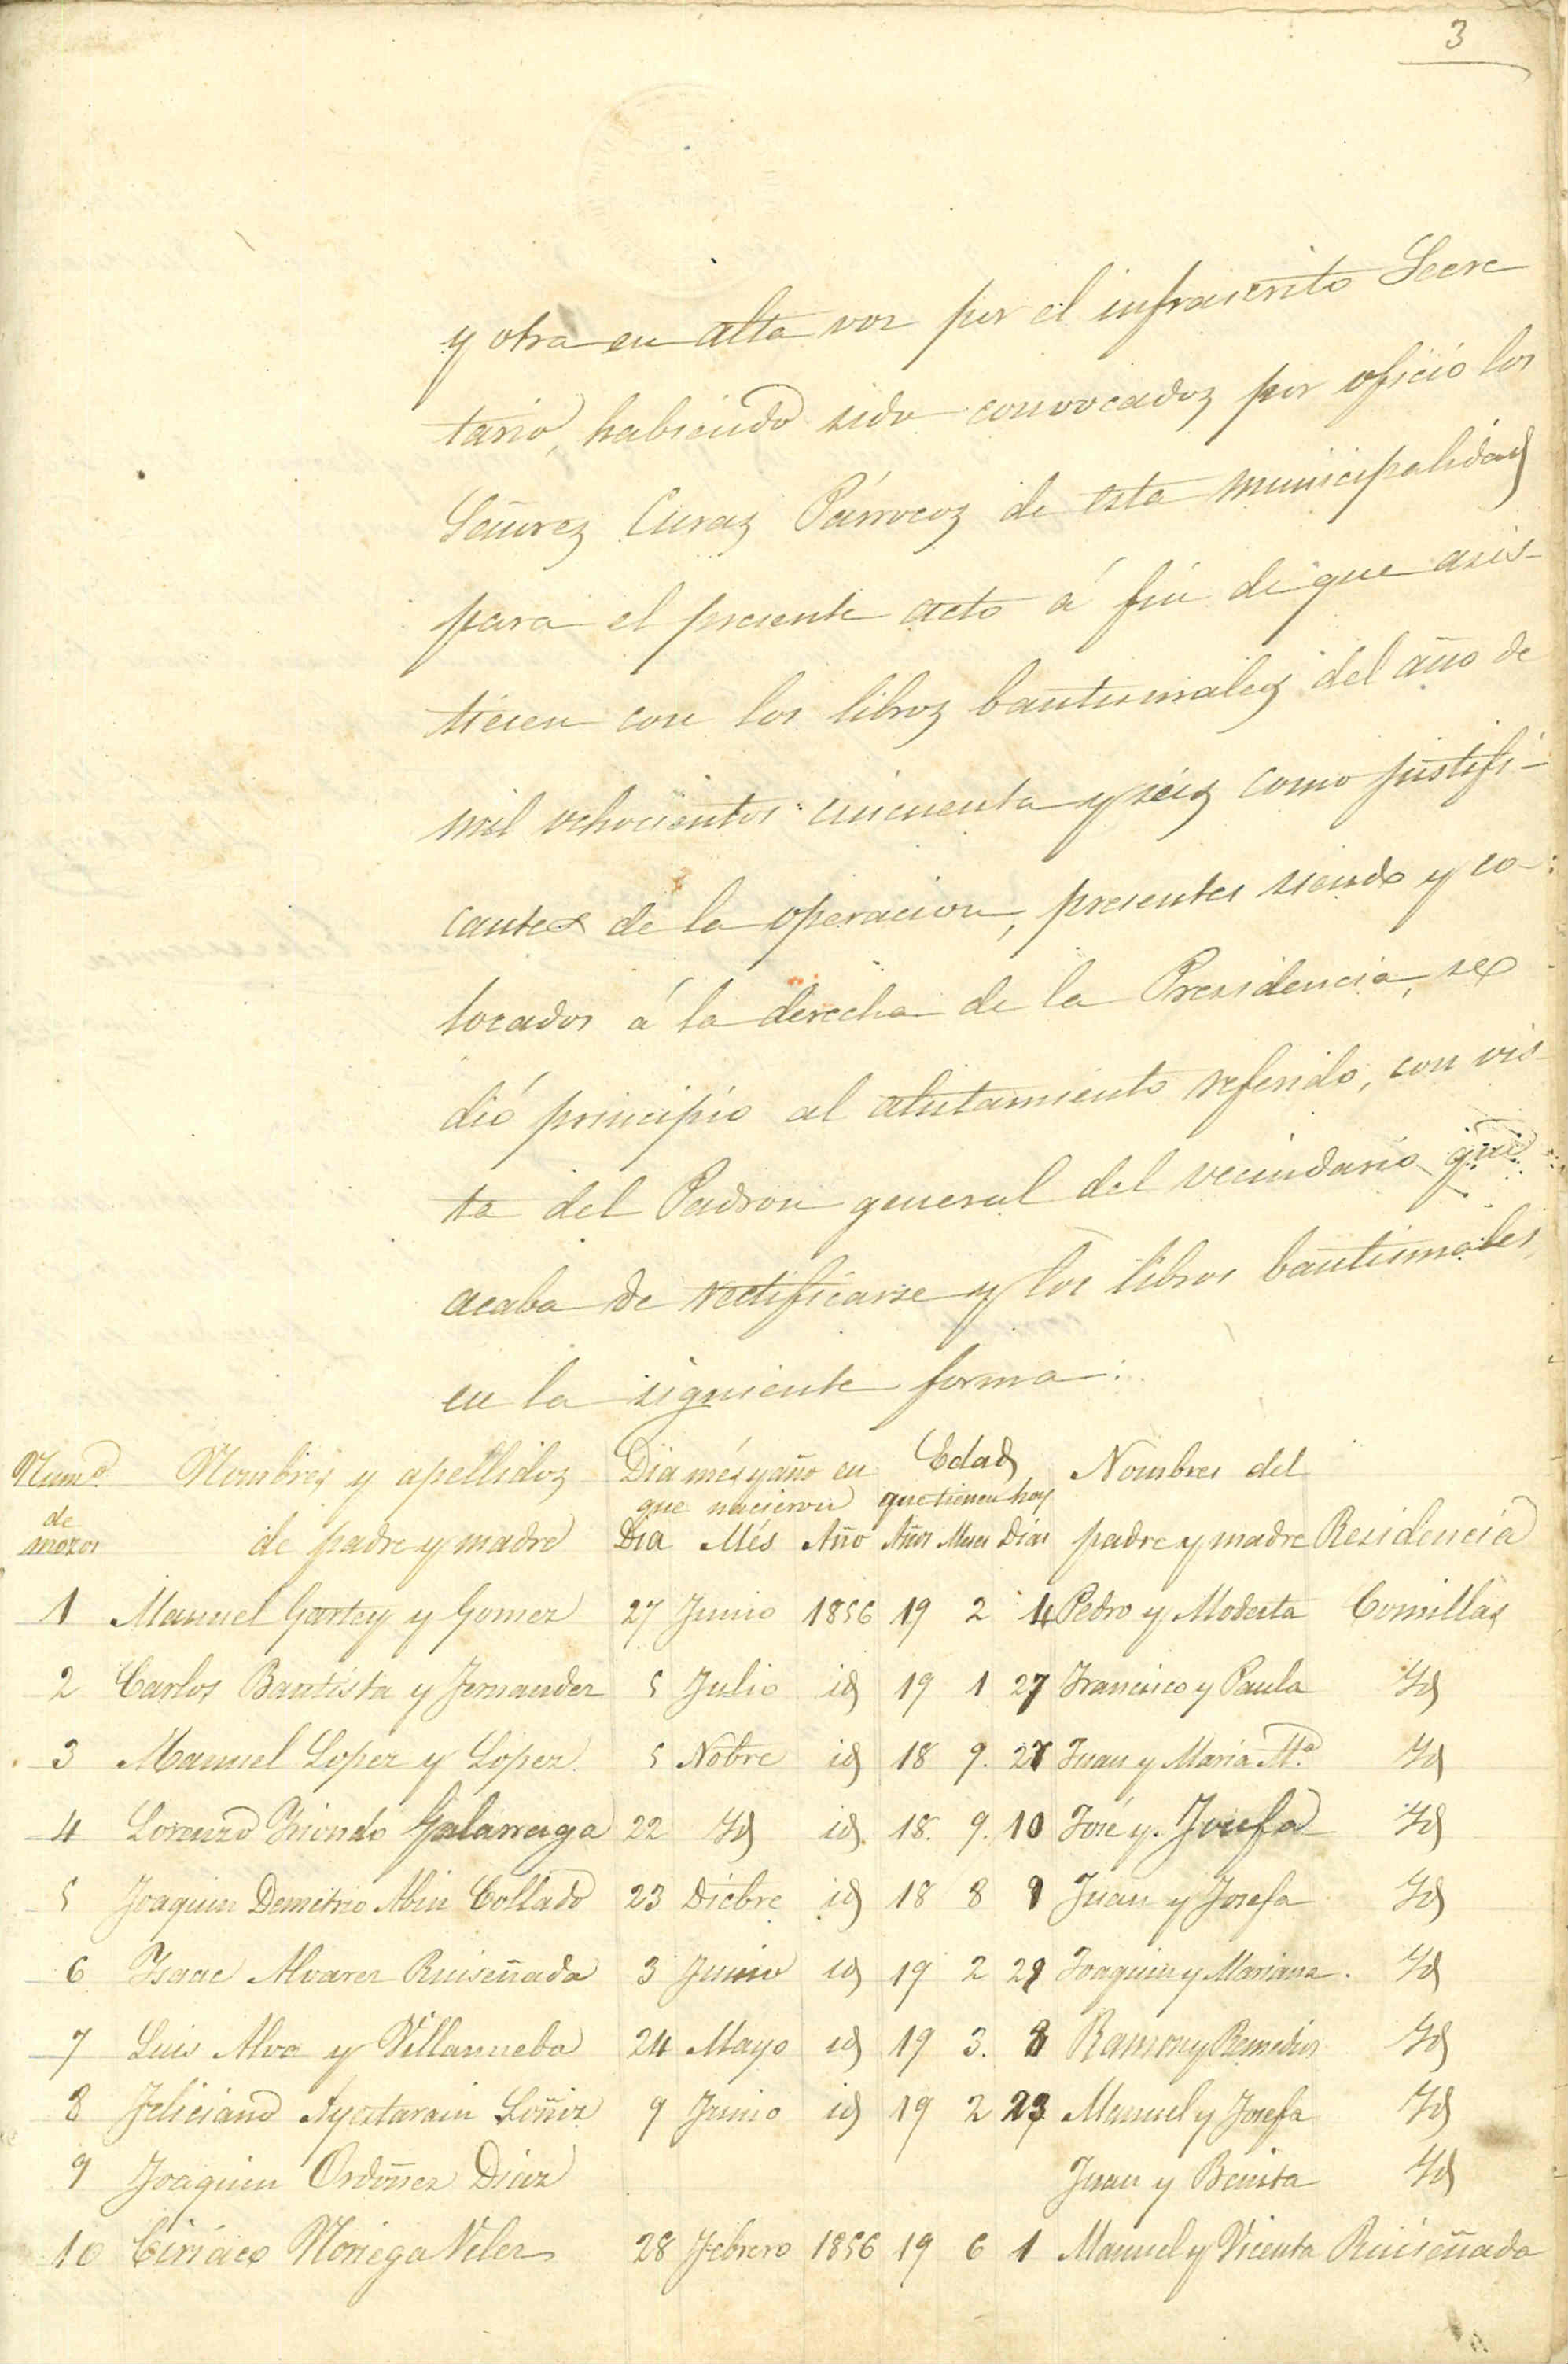 3
y otra en alta voz por el infrascrito Secre
tario, habiendo sido convocados por oficio los
Señores Curas Párrocos de esta municipalidad
para el presente acto á fin de que asis-
tiesen con los libros bautismales del año de
mil ochocientos cincuenta y seis como justifi-
cantes de la operacion, presentes siendo y co-
locados á la derecha de la Presidencia, se
dió principio al alistamiento referido, con vis-
ta del Padron general del vecindario que
acaba de rectificarse y los libros bautismales,
en la siguiente forma:
Numº de mozos Nombres y apellidos de padre y madre Dia més y año en que nacieron Edad que tienen hoy Nombres del padre y madre Residencia
Dia Més Año Años Meses Dias
1 Manuel Gartey y Gomez 27 Junio 1856 19 2 4 Pedro y Modesta Comillas
2 Carlos Bautista y Fernandez 5 Julio id 19 1 27 Francisco y Paula Id
3 Manuel Lopez y Lopez 5 Nobre id 18 9. 27 Juan y Maria Mª Id
4 Lorenzo Iriondo Galarraga 22 Id id 18. 9. 10 José y Josefa Id
5 Joaquin Demetrio Abin Collado 23 Dicbre id 18 8 9 Juan y Josefa Id
6 Isaac Alvarez Ruiseñada 3 Junio id 19 2 29 Joaquin y Mariana. Id
7 Luis Alva y Villanueba 24 Mayo id 19 3. 8 Ramon y Remedios Id
8 Feliciano Ayeztarain Loñiz 9 Junio id 19 2 23 Manuel y Josefa Id
9 Joaquin Ordoñez Diaz Juan y Benita Id
10 Ciriaco Noriega Velez 28 Febrero 1856 19 6 1 Manuel y Vicenta Ruiseñada